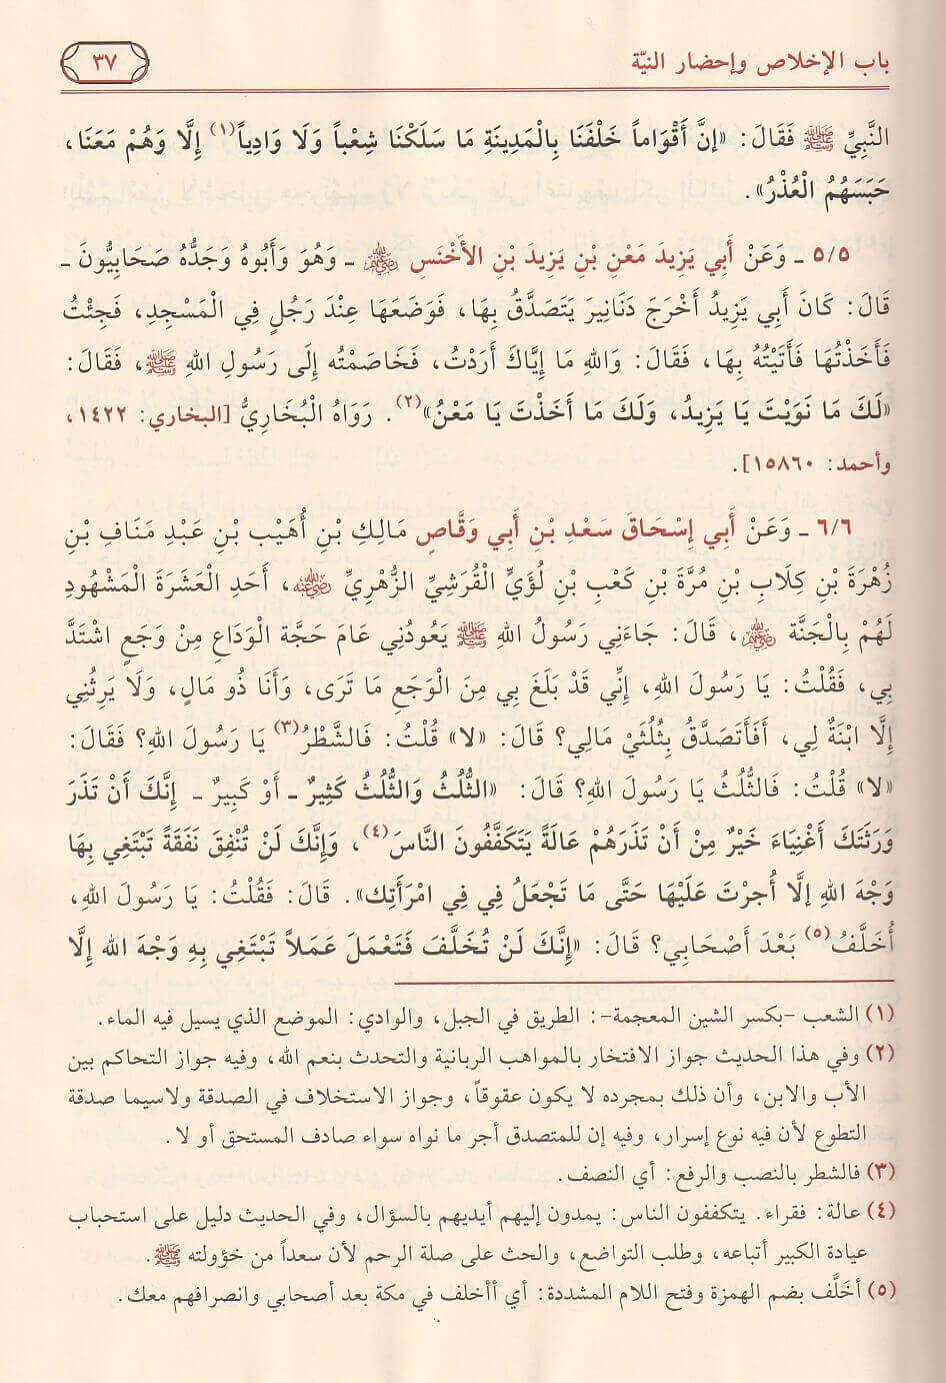 باب الإخلاص وإحضار النيّة ٣٧
النَّبِيِّ ﷺ فَقَالَ: «إنَّ أَقْوَاماً خَلْفَنَا بِالْمَدِينَةِ مَا سَلَكْنَا شِعْباً وَلَا وَادِياً(١) إِلَّا وَهُمْ مَعَنَا،
حَبَسَهُمُ الْعُذْرُ».
٥/٥ ـ وَعَنْ أَبِي يَزِيدَ مَعْنِ بْنِ يَزِيدَ بْنِ الأَخْنَسِ ﵃ ـ وَهُوَ وَأَبُوهُ وَجَدُّهُ صَحَابِيُّونَ ـ
قَالَ: كَانَ أَبِي يَزِيدُ أَخْرَجَ دَنَانِيرَ يَتَصَدَّقُ بِهَا، فَوَضَعَهَا عِنْدَ رَجُلٍ فِي الْمَسْجِدِ، فَجِئْتُ
فَأَخَذْتُهَا فَأَتَيْتُهُ بِهَا، فَقَالَ: وَاللهِ مَا إِيَّاكَ أَرَدْتُ، فَخَاصَمْتُه إِلَى رَسُولِ اللهِ ﷺ، فَقَالَ:
«لَكَ مَا نَوَيْتَ يَا يَزِيدُ، وَلَكَ مَا أَخَذْتَ يَا مَعْنُ»(٢). رَوَاهُ الْبُخَارِيُّ [البخاري: ١٤٢٢،
وأحمد: ١٥٨٦٠].
٦/٦ ـ وَعَنْ أَبِي إِسْحَاقَ سَعْدِ بْنِ أَبِي وَقَّاصٍ مَالِكِ بْنِ أُهَيْبِ بْنِ عَبْدِ مَنَافِ بْنِ
زُهْرَةَ بْنِ كِلَابِ بْنِ مُرَّةَ بْنِ كَعْبِ بْنِ لُؤَيِّ الْقُرَشِيِّ الزُّهْرِيِّ ﵁، أَحَدِ الْعَشَرَةِ الْمَشْهُودِ
لَهُمْ بِالْجَنَّةِ ﵃، قَالَ: جَاءَنِي رَسُولُ اللهِ ﷺ يَعُودُنِي عَامَ حَجَّة الْوَدَاعِ مِنْ وَجَعٍ اشْتَدَّ
بِي، فَقُلْتُ: يَا رَسُولَ اللهِ، إِنِّي قَدْ بَلَغَ بِي مِنَ الْوَجَعِ مَا تَرَى، وَأَنَا ذُو مَالٍ، وَلَا يَرِثُنِي
إِلَّا ابْنَةٌ لِي، أَفَأَتَصَدَّقُ بِثُلُثَيْ مَالِي؟ قَالَ: «لا» قُلْتُ: فَالشَّطْرُ(٣) يَا رَسُولَ اللهِ؟ فَقَالَ:
«لا» قُلْتُ: فَالثُّلُثُ يَا رَسُولَ اللهِ؟ قَالَ: «الثُّلُثُ وَالثُّلُثُ كَثِيرٌ ـ أَوْ كَبِيرٌ ـ إِنَّكَ أَنْ تَذَرَ
وَرَثَتَكَ أَغْنِيَاءَ خَيْرٌ مِنْ أَنْ تَذَرَهُمْ عَالَةً يَتَكَفَّفُونَ النَّاسَ(٤)، وَإِنَّكَ لَنْ تُنْفِقَ نَفَقَةً تَبْتَغِي بِهَا
وَجْهَ اللهِ إلَّا أُجِرْتَ عَلَيْهَا حَتَّى مَا تَجْعَلُ فِي فِي امْرَأَتِك». قَالَ: فَقُلْتُ: يَا رَسُولَ اللهِ،
أُخَلَّفُ(٥) بَعْدَ أَصْحَابِي؟ قَالَ: «إِنَّكَ لَنْ تُخَلَّفَ فَتَعْمَلَ عَمَلاً تَبْتَغِي بِهِ وَجْهَ الله إلَّا
(١) الشعب -بكسر الشين المعجمة-: الطريق في الجبل، والوادي: الموضع الذي يسيل فيه الماء.
(٢) وفي هذا الحديث جواز الافتخار بالمواهب الربانية والتحدث بنعم الله، وفيه جواز التحاكم بين
الأب والابن، وأن ذلك بمجرده لا يكون عقوقاً، وجواز الاستخلاف في الصدقة ولاسيما صدقة
التطوع لأن فيه نوع إسرار، وفيه إن للمتصدق أجر ما نواه سواء صادف المستحق أو لا.
(٣) فالشطر بالنصب والرفع: أي النصف.
(٤) عالة: فقراء. يتكففون الناس: يمدون إليهم أيديهم بالسؤال، وفي الحديث دليل على استحباب
عيادة الكبير أتباعه، وطلب التواضع، والحث على صلة الرحم لأن سعداً من خؤولته ﷺ.
(٥) أخَلَّف بضم الهمزة وفتح اللام المشددة: أي أأخلف في مكة بعد أصحابي وانصرافهم معك.